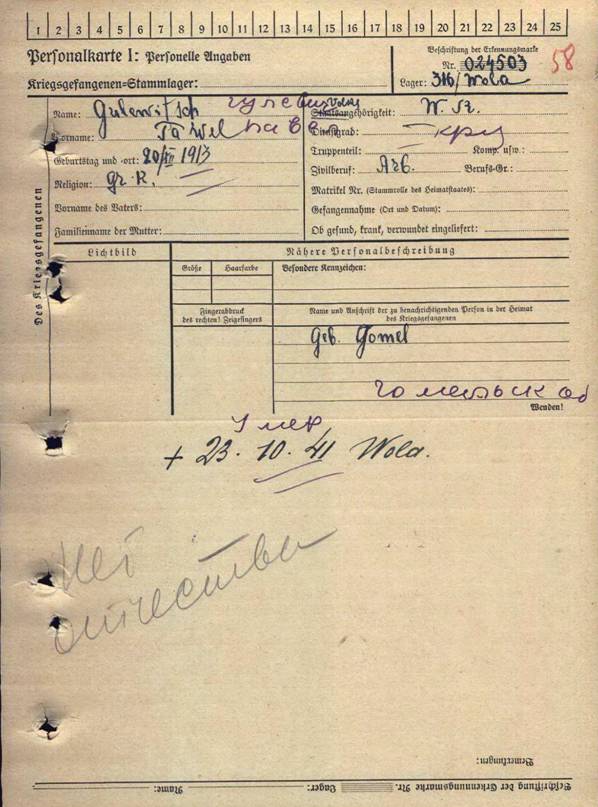 1 2 3 4 5 6 7 8 9 10 11 12 13 14 15 16 17 18 19 20 21 22 23 24 25
Personalkarte I: Personelle Angaben
Beschriftung der Erkennungsmarke
Nr. 024503
58
Kriegsgefangenen-Stammlager:
Lager: 316/Wola
Des Kriegsgefangenen
Name: Gulewitsch
Staatsangehörigkeit: W. R.
Vorname: Pawel Паве
Dienstgrad:
Geburtstag und -ort: 20/XII 1913
Truppenteil: Komp. usw.:
Religion: Gr. K.
Zivilberuf: Arb. Berufs-Gr.:
Vorname des Vaters:
Matrikel Nr. (Stammrolle des Heimatstaates):
Familienname der Mutter:
Gefangennahme (Ort und Datum):
Ob gesund, krank, verwundet eingeliefert:
Lichtbild
Nähere Personalbeschreibung
Größe Haarfarbe Besondere Kennzeichen:
Fingerabdruck
des rechten! Zeigefingers
Name und Anschrift der zu benachrichtigenden Person in der Heimat
des Kriegsgefangenen
Geb. Gomel
Гомельск об
Wenden!
Умер
+ 23. 10. 41 Wola.
Нет
отчества
Bemerkungen:
Beschriftung der Erkennungsmarke Nr. Lager: Name: